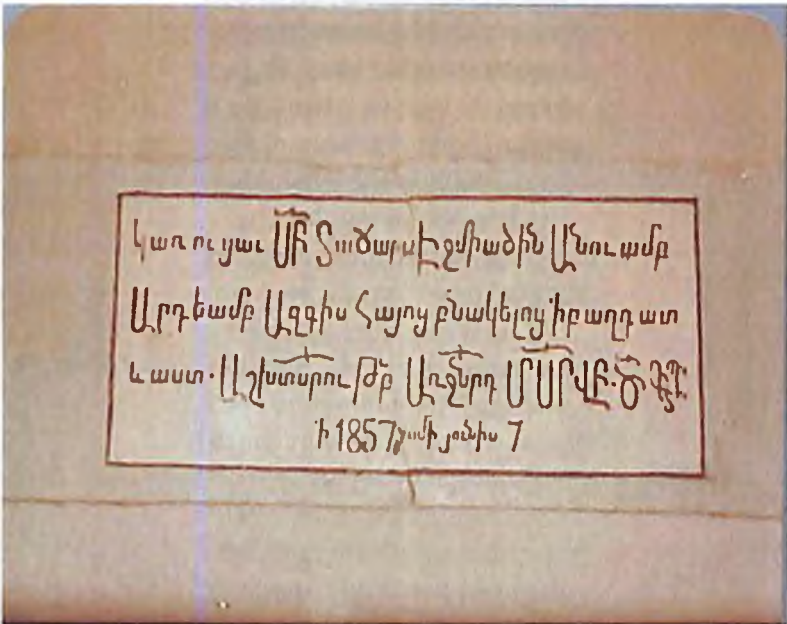 Կառուցաւ ՍԲ Տաճարս Էջմիածին Անուամբ
Արդեամբ Ազգիս Հայոց բնակելոց ի բաղդատ
և աստ. Աշխտսրութբ Առջնրդ
ի 1857 ամի յունիս 7